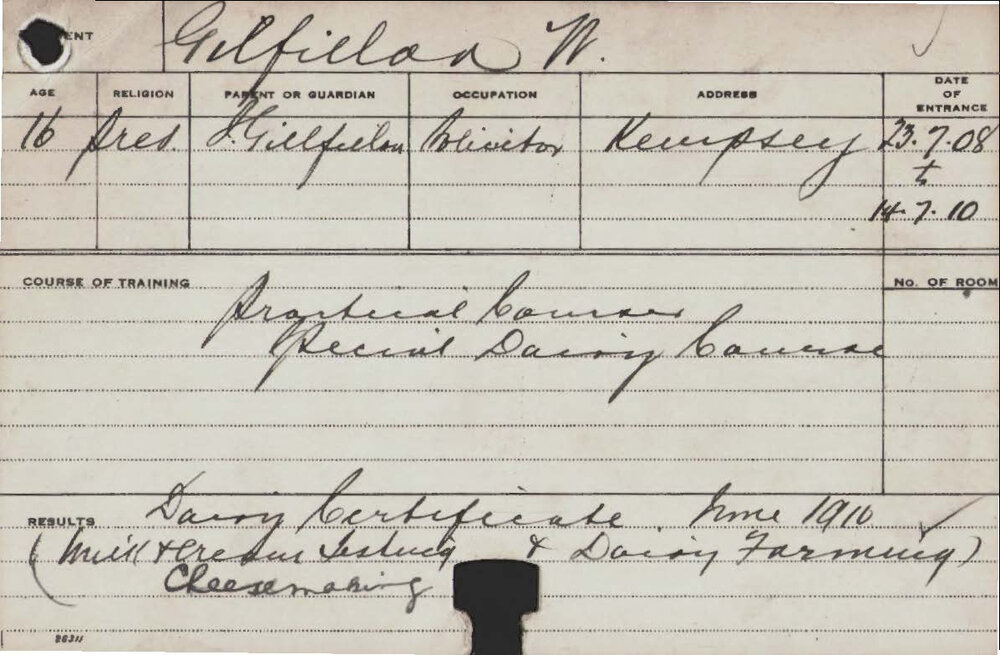 ENT Gilfillan W.
AGE RELIGION PARENT OR GUARDIAN OCCUPATION ADDRESS DATE OF ENTRANCE
16 Pres. Gillfillan Solicitor Kempsey 23.7.08
to
14.7.10
COURSE OF TRAINING No. OF ROOM
Practical Course
Special Dairy Course
RESULTS Dairy Certificate. June 1910
(Milk & Cream Testing & Dairy Farming)
Cheesemaking
26311